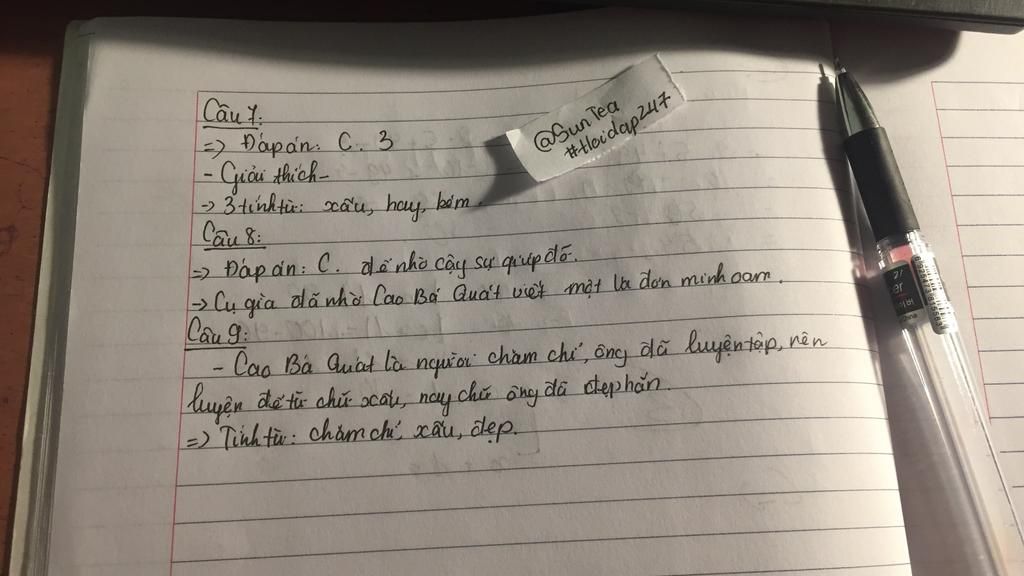 Câu 7:
=) Đáp án: C. 3
- Giải thích -
-> 3 tính từ: xấu, hay, kém.
Câu 8:
=) Đáp án: C. để nhờ cậy sự giúp đỡ.
-> Cụ già đã nhờ Cao Bá Quát viết một lá đơn minh oan.
Câu 9:
- Cao Bá Quát là người chăm chỉ, ông đã luyện tập, rèn
luyện để từ chữ xấu, nay chữ ông đã đẹp hẳn.
=) Tính từ: chăm chỉ, xấu, đẹp.
@Sun Tea
#Hoidap247